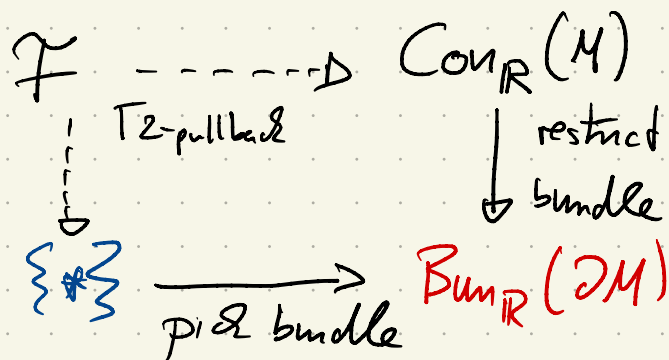 F Con_ℝ(M)
Γ2-pullback restrict
bundle
{*} Bun_ℝ(∂M)
pick bundle